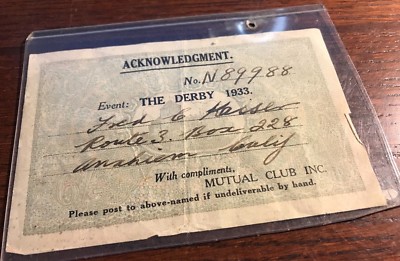 ACKNOWLEDGMENT.
No. N 89988
Event: THE DERBY 1933.
Fred C Heiser
Route 3. Box 228
Anahiem Calif
With compliments,
MUTUAL CLUB INC.
Please post to above-named if undeliverable by hand.